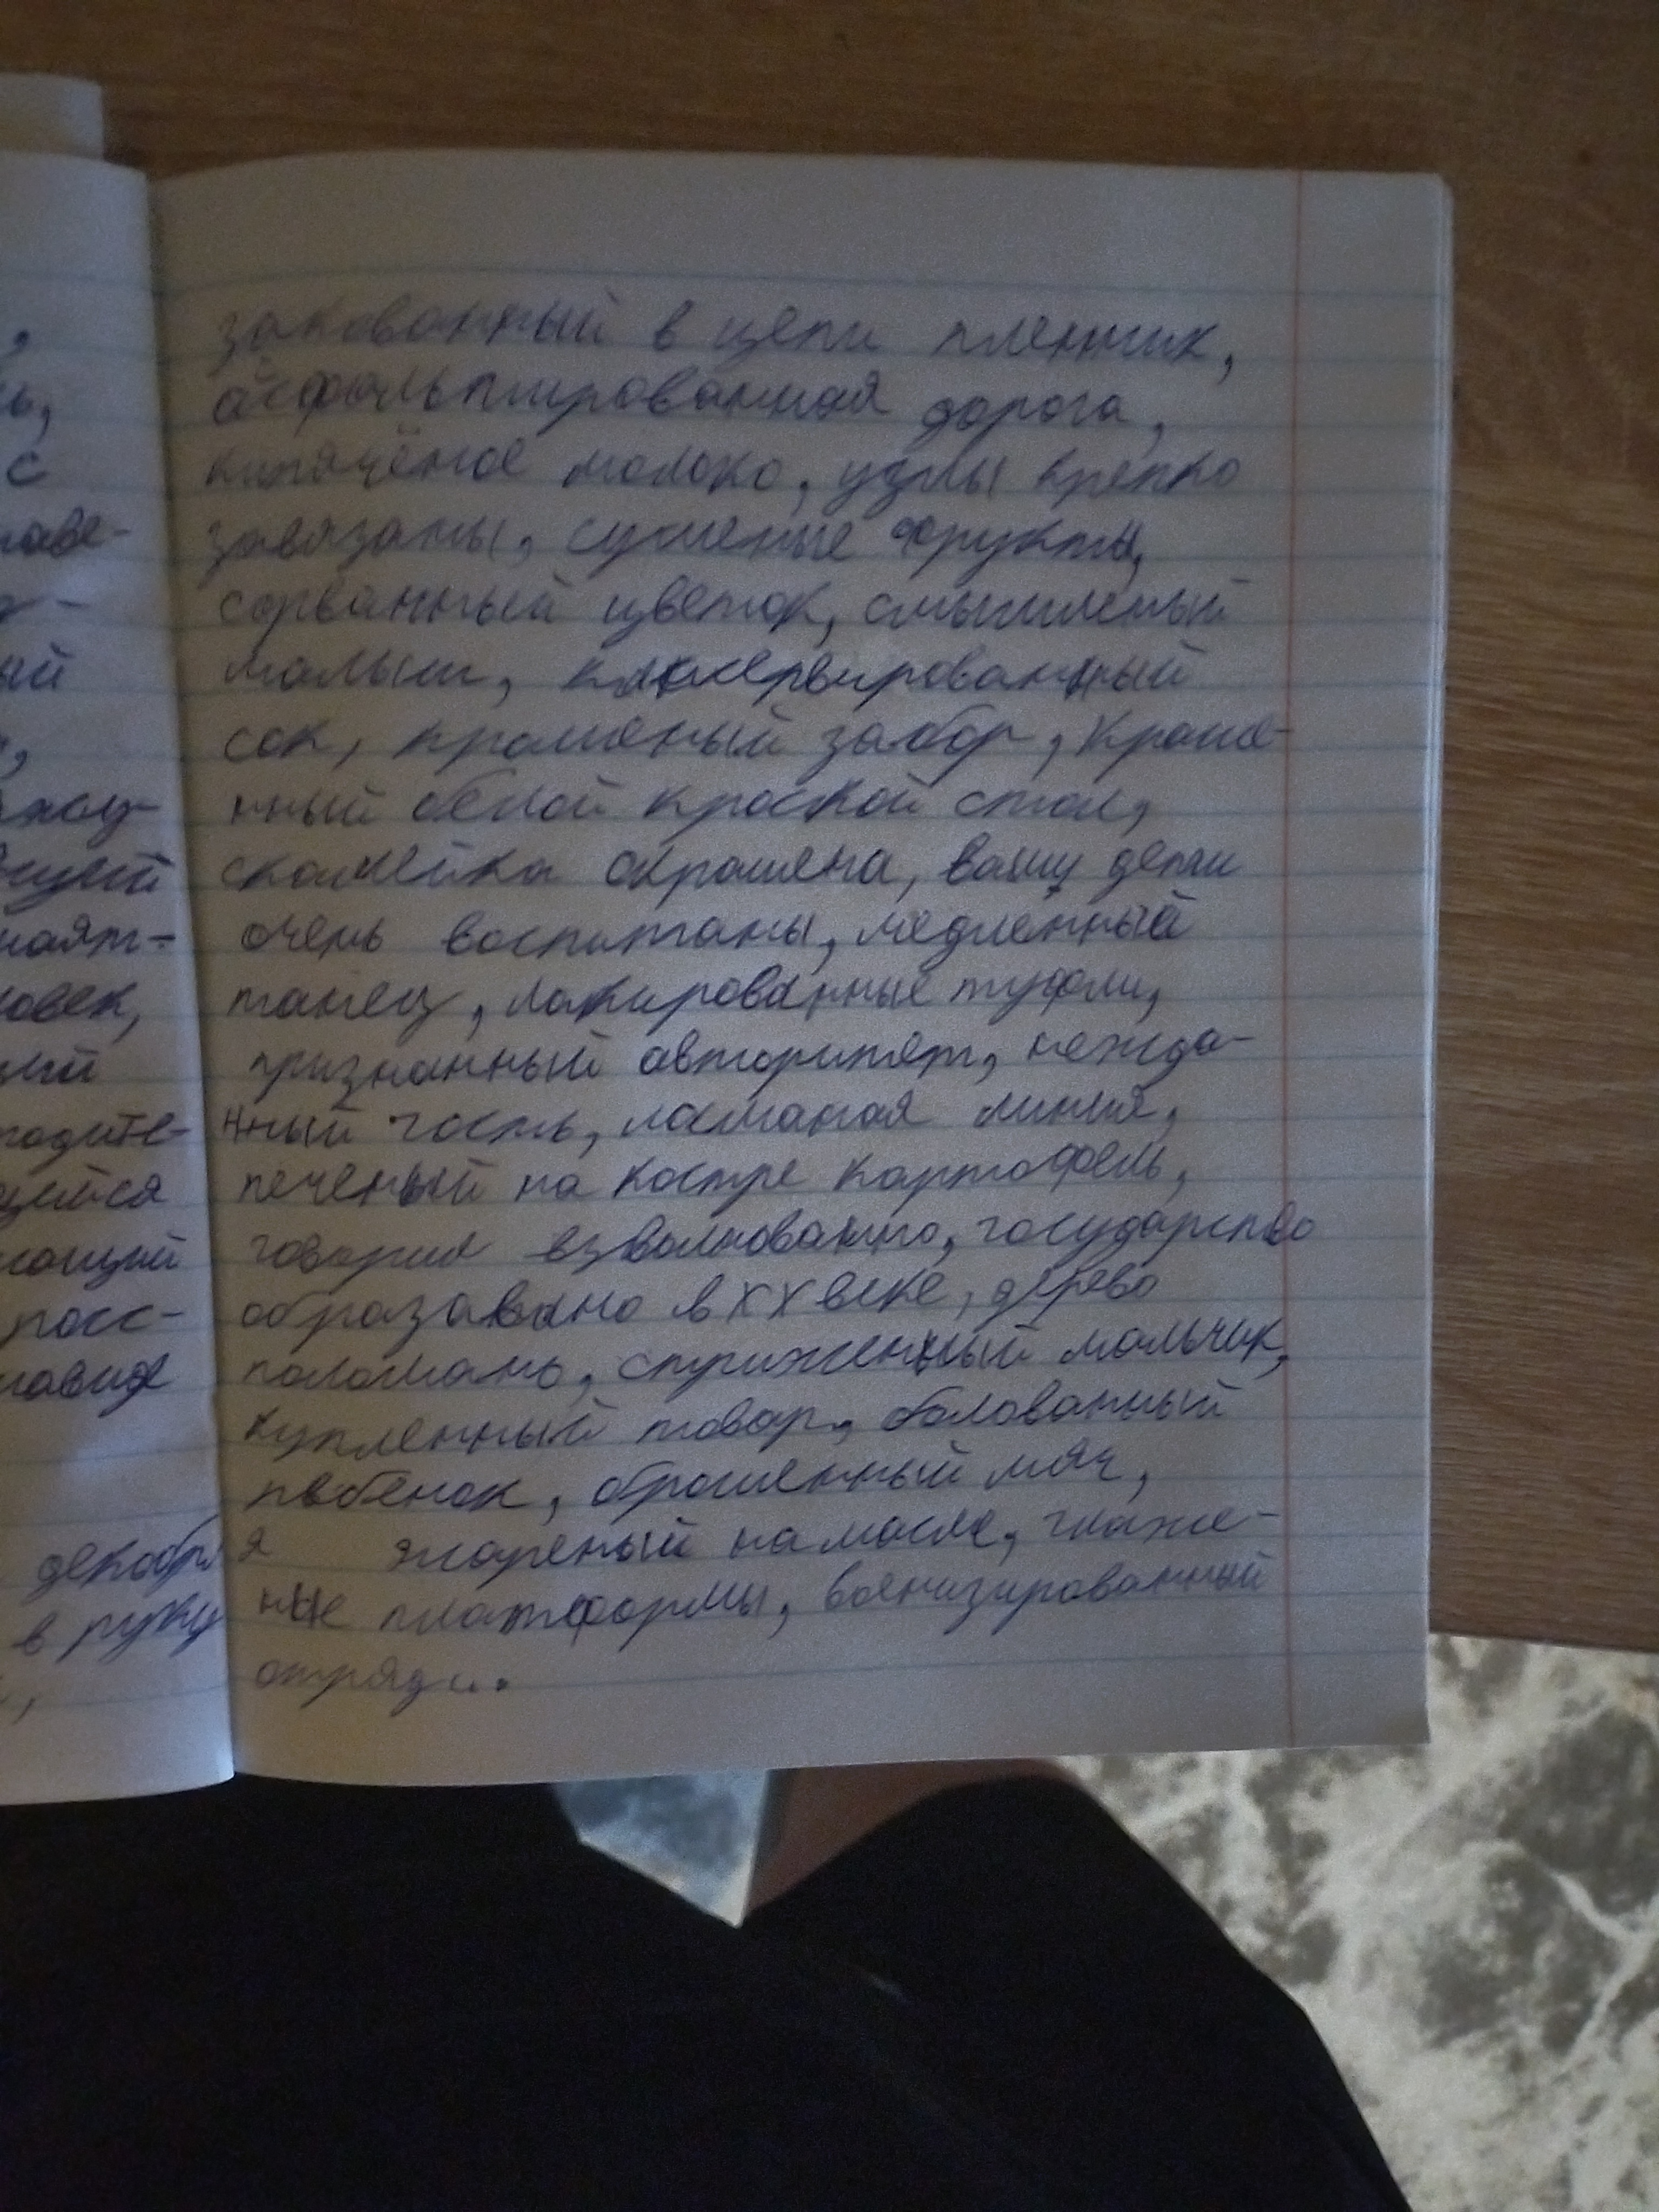 закованный в цепи пленник,
асфальтированная дорога,
кипячёное молоко, узлы крепко
завязаны, сушеные фрукты,
сорванный цветок, смышленый
малыш, консервированный
сок, крашеный забор, краше-
нный белой краской стол,
скамейка окрашена, ваши дети
очень воспитаны, медленный
танец, лакированные туфли,
признанный авторитет, нежда-
нный гость, ломаная линия,
печеный на костре картофель,
говорил взволнованно, государство
образавано в XX веке, дерево
поломано, стриженный мальчик,
купленный товар, балованный
ребенок, брошенный мяч,
жареный на масле, глаже-
ные платформы, военизированный
отряд
,
ь,
с
ный
овек,
щийся
декабря
в руку